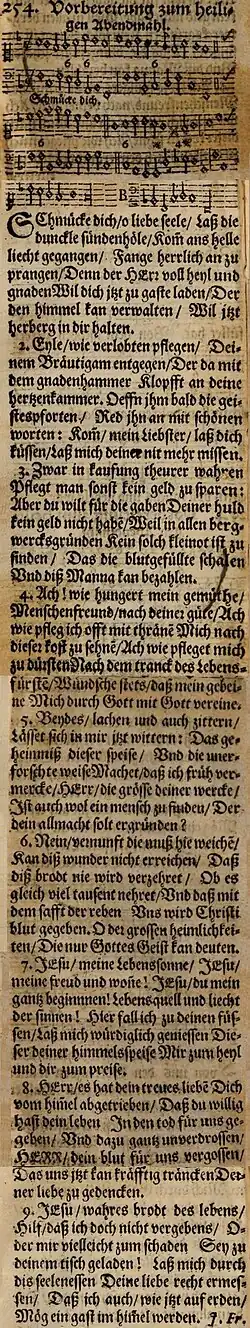 254. Vorbereitung zum heili-
gen Abendmahl.
6 6 6
Schmücke dich
6
6 6 * 4*
B
SChmücke dich/o liebe seele/ Laß die
dunckle sündenhöle/Kom̃ ans helle
liecht gegangen/ Fange herrlich an zu
prangen/Denn der HErr voll heyl und
gnaden Wil dich jtzt zu gaste laden/Der
den himmel kan verwalten/ Wil jtzt
herberg in dir halten.
2. Eyle/wie verlobten pflegen/ Dei-
nem Bräutigam entgegen/Der da mit
dem gnadenhammer Klopfft an deine
hertzenkammer. Oeffn jhm bald die gei-
stespforten/ Red jhn an mit schönen
worten: Kom̃/ mein Liebster/ laß dich
küssen/Laß mich deiner nit mehr missen.
3. Zwar in kaufung theurer wahren
Pflegt man sonst kein geld zu sparen:
Aber du wilt für die gaben Deiner huld
kein geld nicht habẽ/Weil in allen berg-
wercksgründen Kein solch kleinot ist zu
finden/ Das die blutgefüllte schalen
Vnd diß Manna kan bezahlen.
4. Ach! wie hungert mein gemüthe/
Menschenfreund/nach deiner güte/Ach
wie pfleg ich offt mit thränẽ Mich nach
dieser kost zu sehnẽ/Ach wie pfleget mich
zu dürsten Nach dem tranck des Lebens-
fürstẽ/Wündsche stets/daß mein gebei-
ne Mich durch Gott mit Gott vereine.
5. Beydes/ lachen und auch zittern/
Lässet sich in mir jtzt wittern: Das ge-
heimniß dieser speise/ Vnd die uner-
forschte weise Machet/daß ich früh ver-
mercke/HErr/die grösse deiner wercke/
Ist auch wol ein mensch zu finden/ Der
dein allmacht solt ergründen?
6. Nein/vernunft die muß hie weichẽ/
Kan diß wunder nicht erreichen/ Daß
diß brodt nie wird verzehret/ Ob es
gleich viel tausent nehret/Vnd daß mit
dem safft der reben Vns wird Christi
blut gegeben. O der grossen heimlichkei-
ten/Die nur Gottes Geist kan deuten.
7. JEsu/meine Lebenssonne/ JEsu/
meine freud und wonẽ! JEsu/du mein
gantz beginnnen! Lebensquell und liecht
der sinnen! Hier fall ich zu deinen füs-
sen/Laß mich würdiglich geniessen Die-
ser deiner himmelsspeise Mir zum heyl
und dir zum preise.
8. HErr/es hat dein treues liebẽ Dich
vom him̃el abgetrieben/ Daß du willig
hast dein leben In den tod für uns ge-
geben/ Vnd dazu gantz unverdrossen/
HERR/dein blut für uns vergossen/
Das uns jtzt kan kräfftig träncken Dei-
ner liebe zu gedencken.
9. JEsu/wahres brodt des lebens/
Hilf/daß ich doch nicht vergebens/ O-
der mir vielleicht zum schaden Sey zu
deinem tisch geladen! Laß mich durch
dis seelenessen Deine liebe recht ermes-
sen/ Daß ich auch/wie jtzt auf erden/
Mög ein gast im him̃el werden. J. Fr.